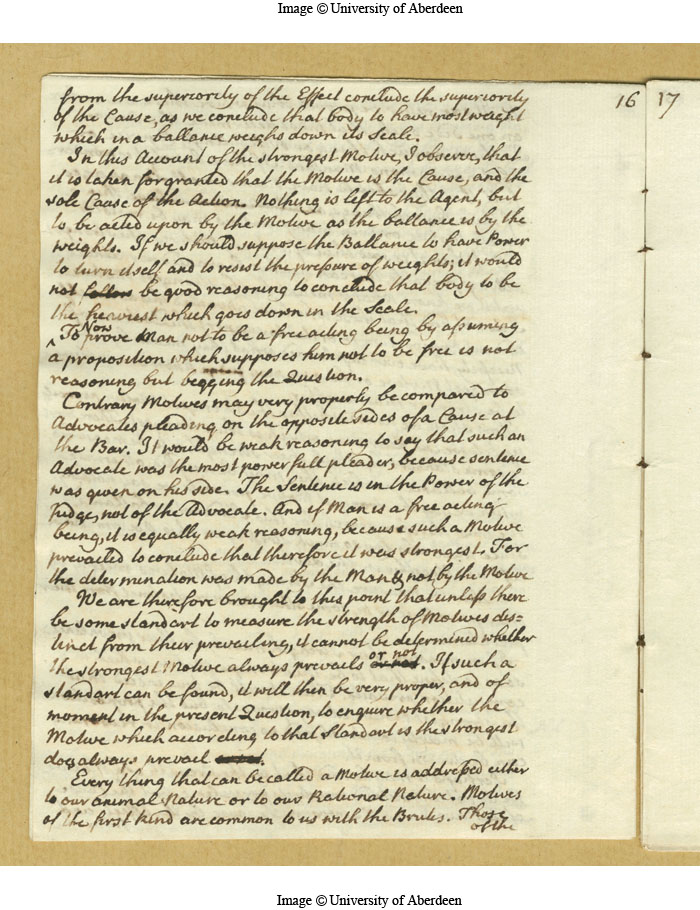 Image © University of Aberdeen
16 17
from the superiority of the Effect conclude the superiority
of the Cause, as we conclude that body to have most weight
which in a ballance weighs down its Scale.
In this Account of the strongest Motive, I observe, that
it is taken for granted that the Motive is the Cause, and the
sole Cause of the Action. Nothing is left to the Agent, but
to be acted upon by the Motive as the ballance is by the
weights. If we should suppose the Ballance to have Power
to turn itself and to resist the pressure of weights; it would
not be good reasoning to conclude that body to be
the heaviest which goes down in the Scale.
^ To Now prove Man not to be a free acting being by assuming
a proposition which supposes him not to be free is not
reasoning but begging the Question.
Contrary Motives may very properly be compared to
Advocates pleading on the opposite sides of a Cause at
the Bar. It would be weak reasoning to say that such an
Advocate was the most powerfull pleader, because sentence
was given on his side. The Sentence is in the Power of the
Judge, not of the Advocate. And if Man is a free acting
being, it is equally weak reasoning, because such a Motive
prevailed to conclude that therefore it was strongest. For
the determination was made by the Man & not by the Motive
We are therefore brought to this point that unless there
be some standart to measure the strength of Motives dis=
tinct from their prevailing, it cannot be determined whether
the strongest Motive always prevails or not. If such a
standart can be found, it will then be very proper, and of
moment in the present Question, to enquire whether the
Motive which according to that Standart is the strongest
does always prevail.
Every thing that can be called a Motive is addressed either
to our animal Nature or to our Rational Nature. Motives
of the first kind are common to us with the Brutes. Those
of the
Image © University of Aberdeen